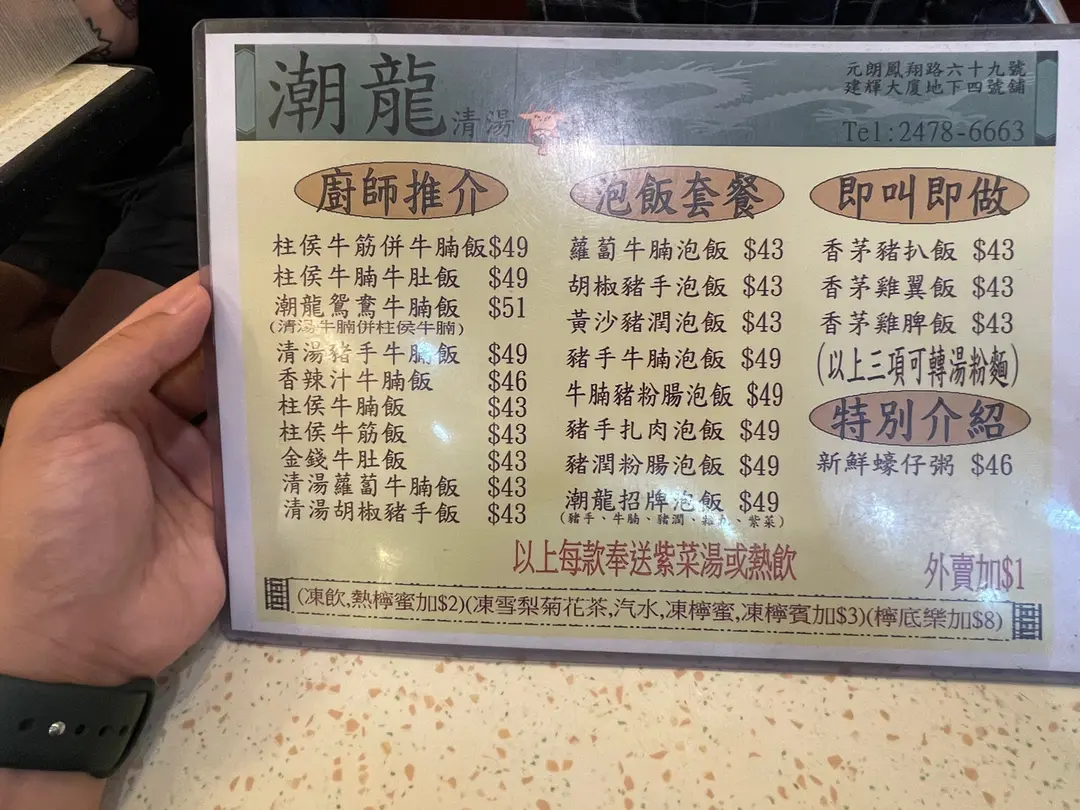 潮龍清湯
元朗鳳翔路六十九號
建輝大廈地下四號舖
Tel:2478-6663
廚師推介
柱侯牛筋併牛腩飯$49
柱侯牛腩牛肚飯 $49
潮龍鴛鴦牛腩飯 $51
(清湯牛腩併柱侯牛腩)
清湯豬手牛腩飯 $49
香辣汁牛腩飯 $46
柱侯牛腩飯 $43
柱侯牛筋飯 $43
金錢牛肚飯 $43
清湯蘿蔔牛腩飯 $43
清湯胡椒豬手飯 $43
泡飯套餐
蘿蔔牛腩泡飯 $43
胡椒豬手泡飯 $43
黃沙豬潤泡飯 $43
豬手牛腩泡飯 $49
牛腩豬粉腸泡飯 $49
豬手扎肉泡飯 $49
豬潤粉腸泡飯 $49
潮龍招牌泡飯 $49
(豬手、牛腩、豬潤、紫菜)
即叫即做
香茅豬扒飯 $43
香茅雞翼飯 $43
香茅雞脾飯 $43
(以上三項可轉湯粉麵)
特別介紹
新鮮蠔仔粥 $46
以上每款奉送紫菜湯或熱飲
外賣加$1
(凍飲,熱檸蜜加$2)(凍雪梨菊花茶,汽水,凍檸蜜,凍檸賓加$3)(檸底樂加$8)